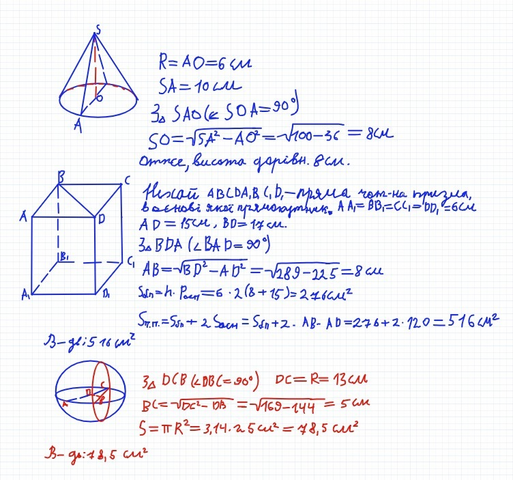 S
O
A
R = AO = 6 см
SA = 10 см
З△ SAO (∠ SOA = 90°)
SO = √SA² - AO² = √100 - 36 = 8 см
Отже, висота дорівн. 8 см.
B
C
A
D
B₁
C₁
A₁
D₁
Нехай ABCDA₁B₁C₁D₁ - пряма чот-на призма,
в основі якої прямокутник. AA₁ = BB₁ = CC₁ = DD₁ = 6 см
AD = 15 см, BD = 17 см.
З△ BDA (∠ BAD = 90°)
AB = √BD² - AD² = √289 - 225 = 8 см
Sбп = h · Pосн = 6 · 2(8 + 15) = 276 см²
Sп.п. = Sбп + 2 Sосн = Sбп + 2 · AB · AD = 276 + 2 · 120 = 516 см²
В-дь: 516 см²
З△ DCB (∠DBC = 90°) DC = R = 13 см
BC = √DC² - DB = √169 - 144 = 5 см
S = πR² = 3,14 · 25 см² = 78,5 см²
В-дь: 78,5 см²